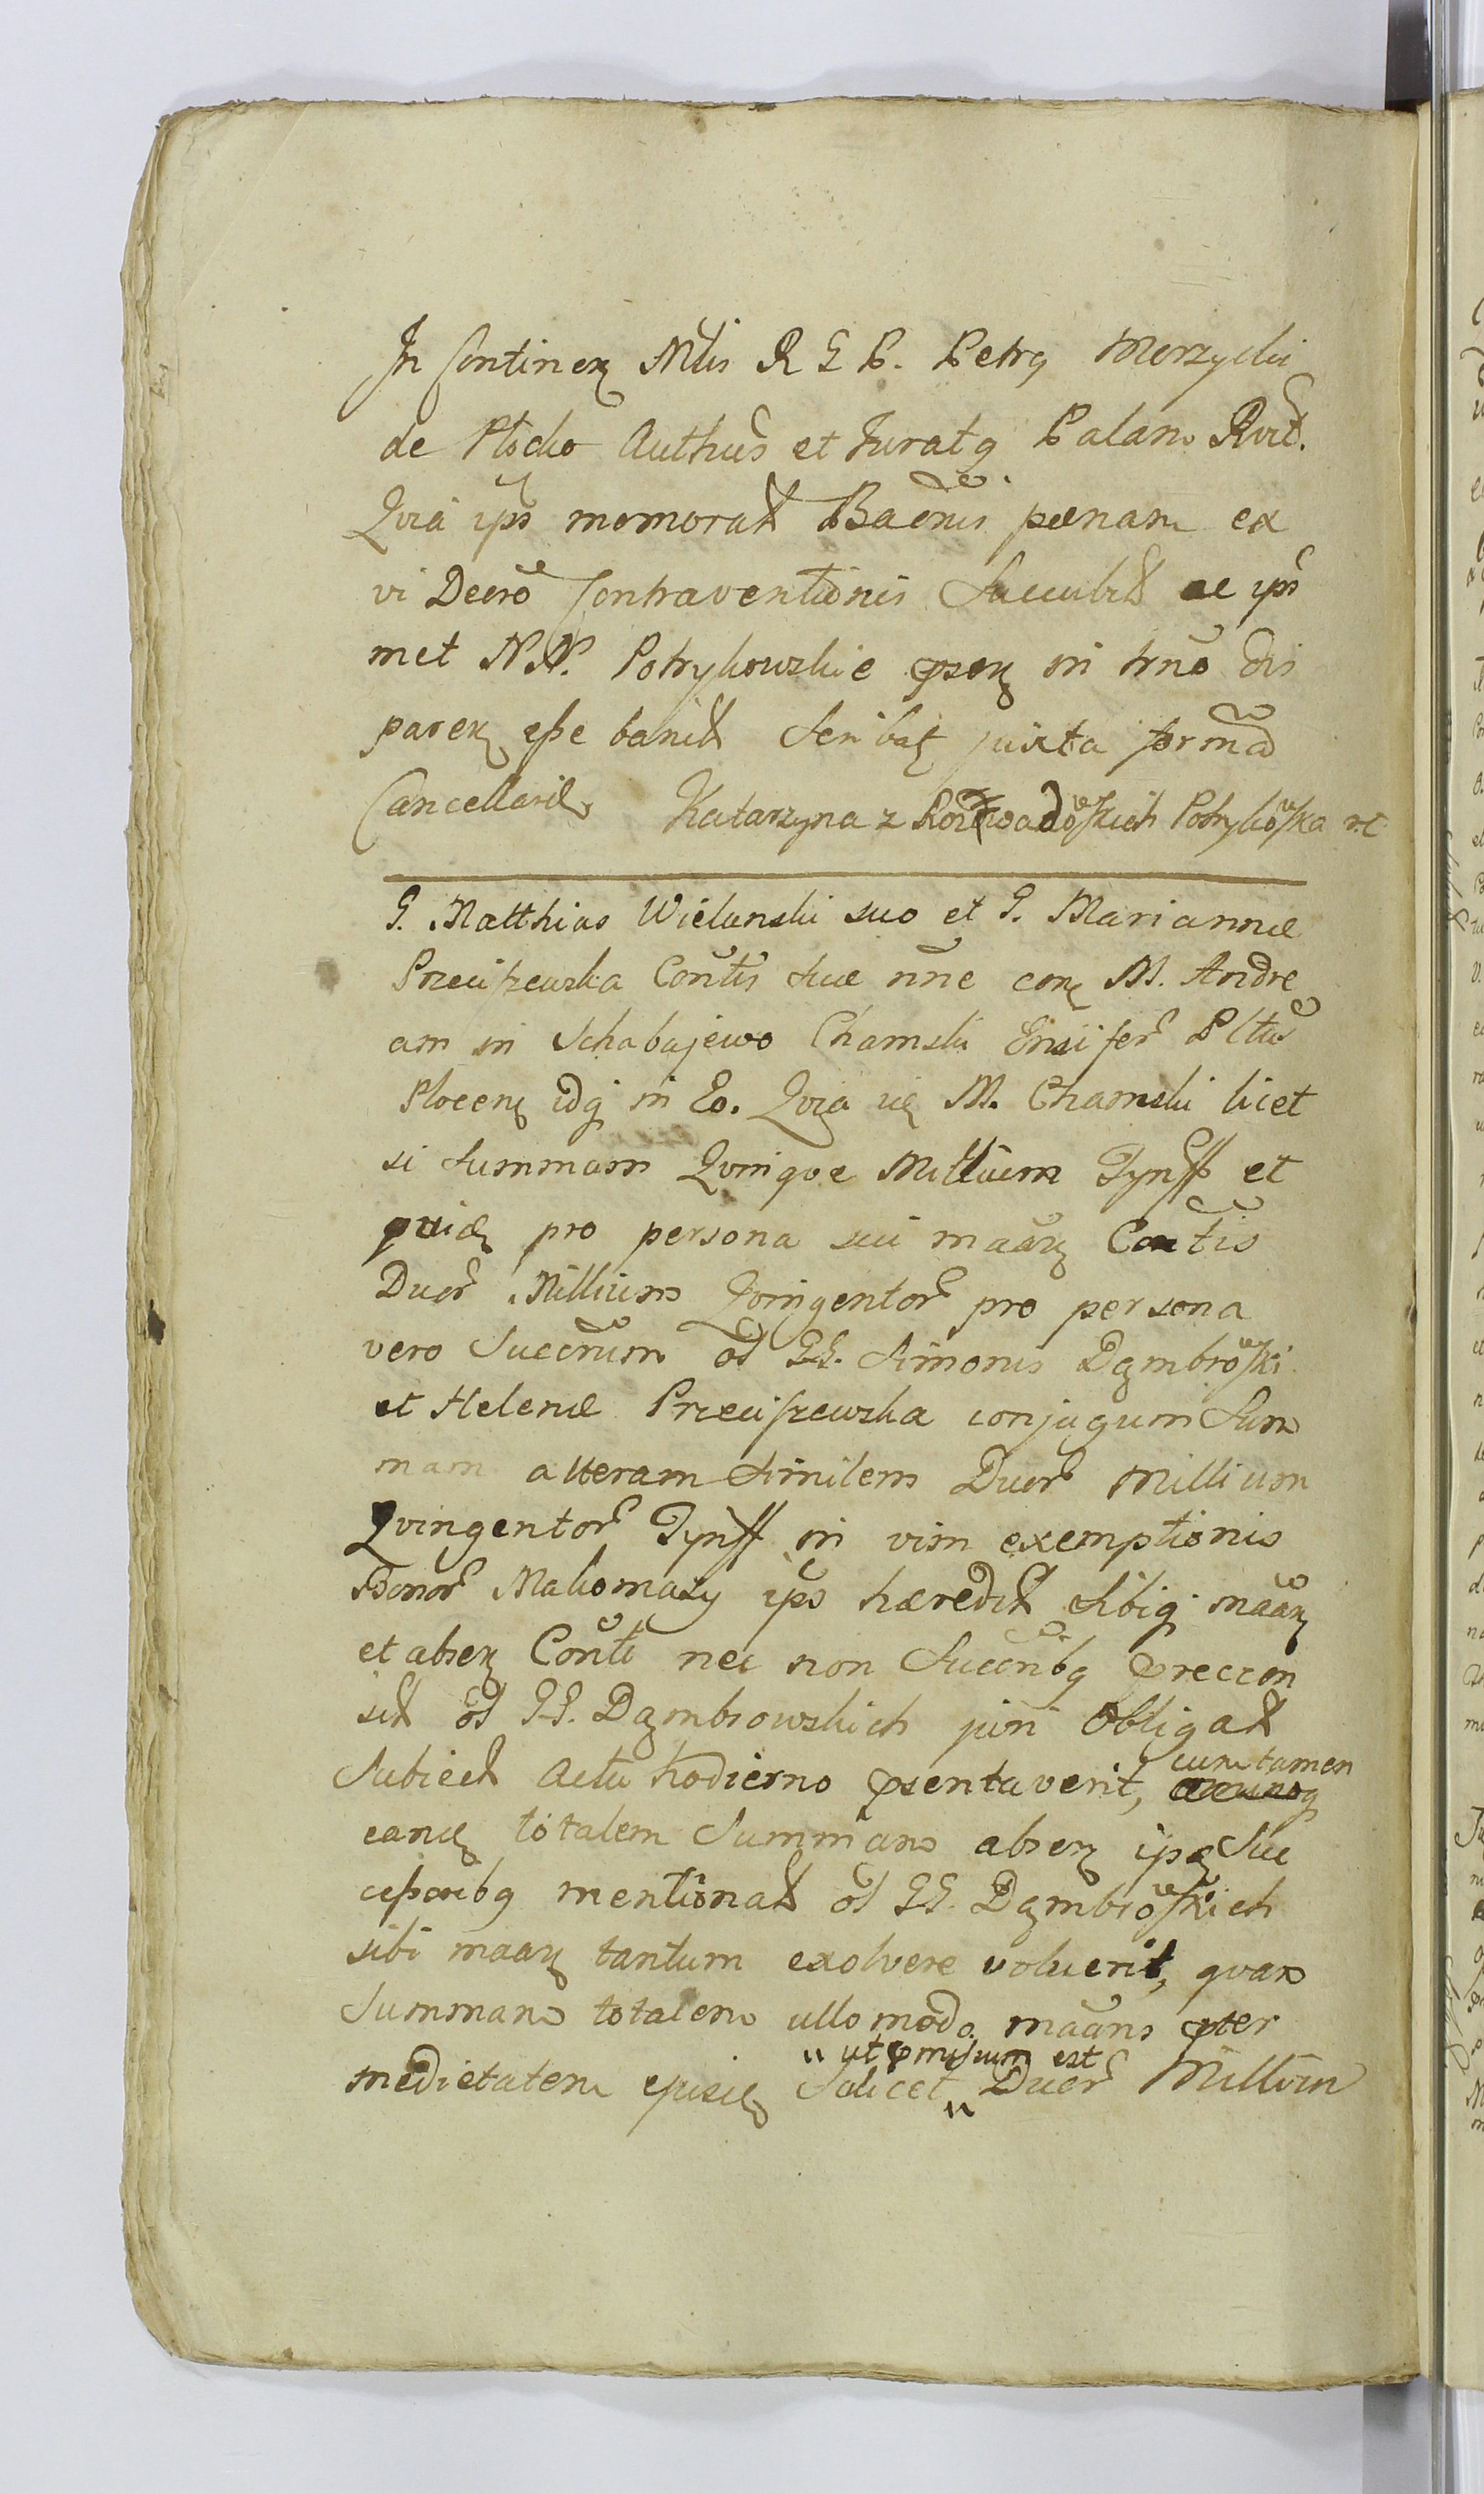 In Continen Mlis R G P. Petrq Morzycki
de Plocko Authus et Juratq Palam Rvit.
Qvia ips memorat Baonis pœnam ex
vi Decro Contraventionis Succubit ac ips
met NN. Potrykowskie psen in trno dis
paren esse banit Scribat juxta formā
Cancellariæ Katarzyna z Rozwadoskich Potrykoska
G. Matthias Wielunski suo et G. Mariannæ
Przeciszewska Contis suæ nne con M. Andre
am in Schabajewo Chamski Ensifer Pltus
Plocen idq in Eo. Qvia M. Chamski licet
si summam Qvinqve Millium Tynff et
quid pro persona sui maan Contis
Duor Millium Qvingentor pro persona
vero Succrum ol GG. Simonis Dąmbroski
et Helenæ Przeciszewska conjugum Sum
mam alteram similem Duor Millium
Qvingentor Tynff in vim exemptionis
Bonor Makomazy ips hæredit sibiq maan
et absen Conti nec non Succribq præccon
sit ol GG. Dąmbrowskich juri obligat
Subiect Actu hodierno psentaverit, cum tamen
eand totalem Summam absen ipse Suc
cessoribq mentionat ol GG. Dąmbroskich
sibi maan tantum exolvere voluerit, qvam
Summam totalem ullo modo maans pter
" ut pmissum est
medietatem ejusd Scilicet " Duor Millium